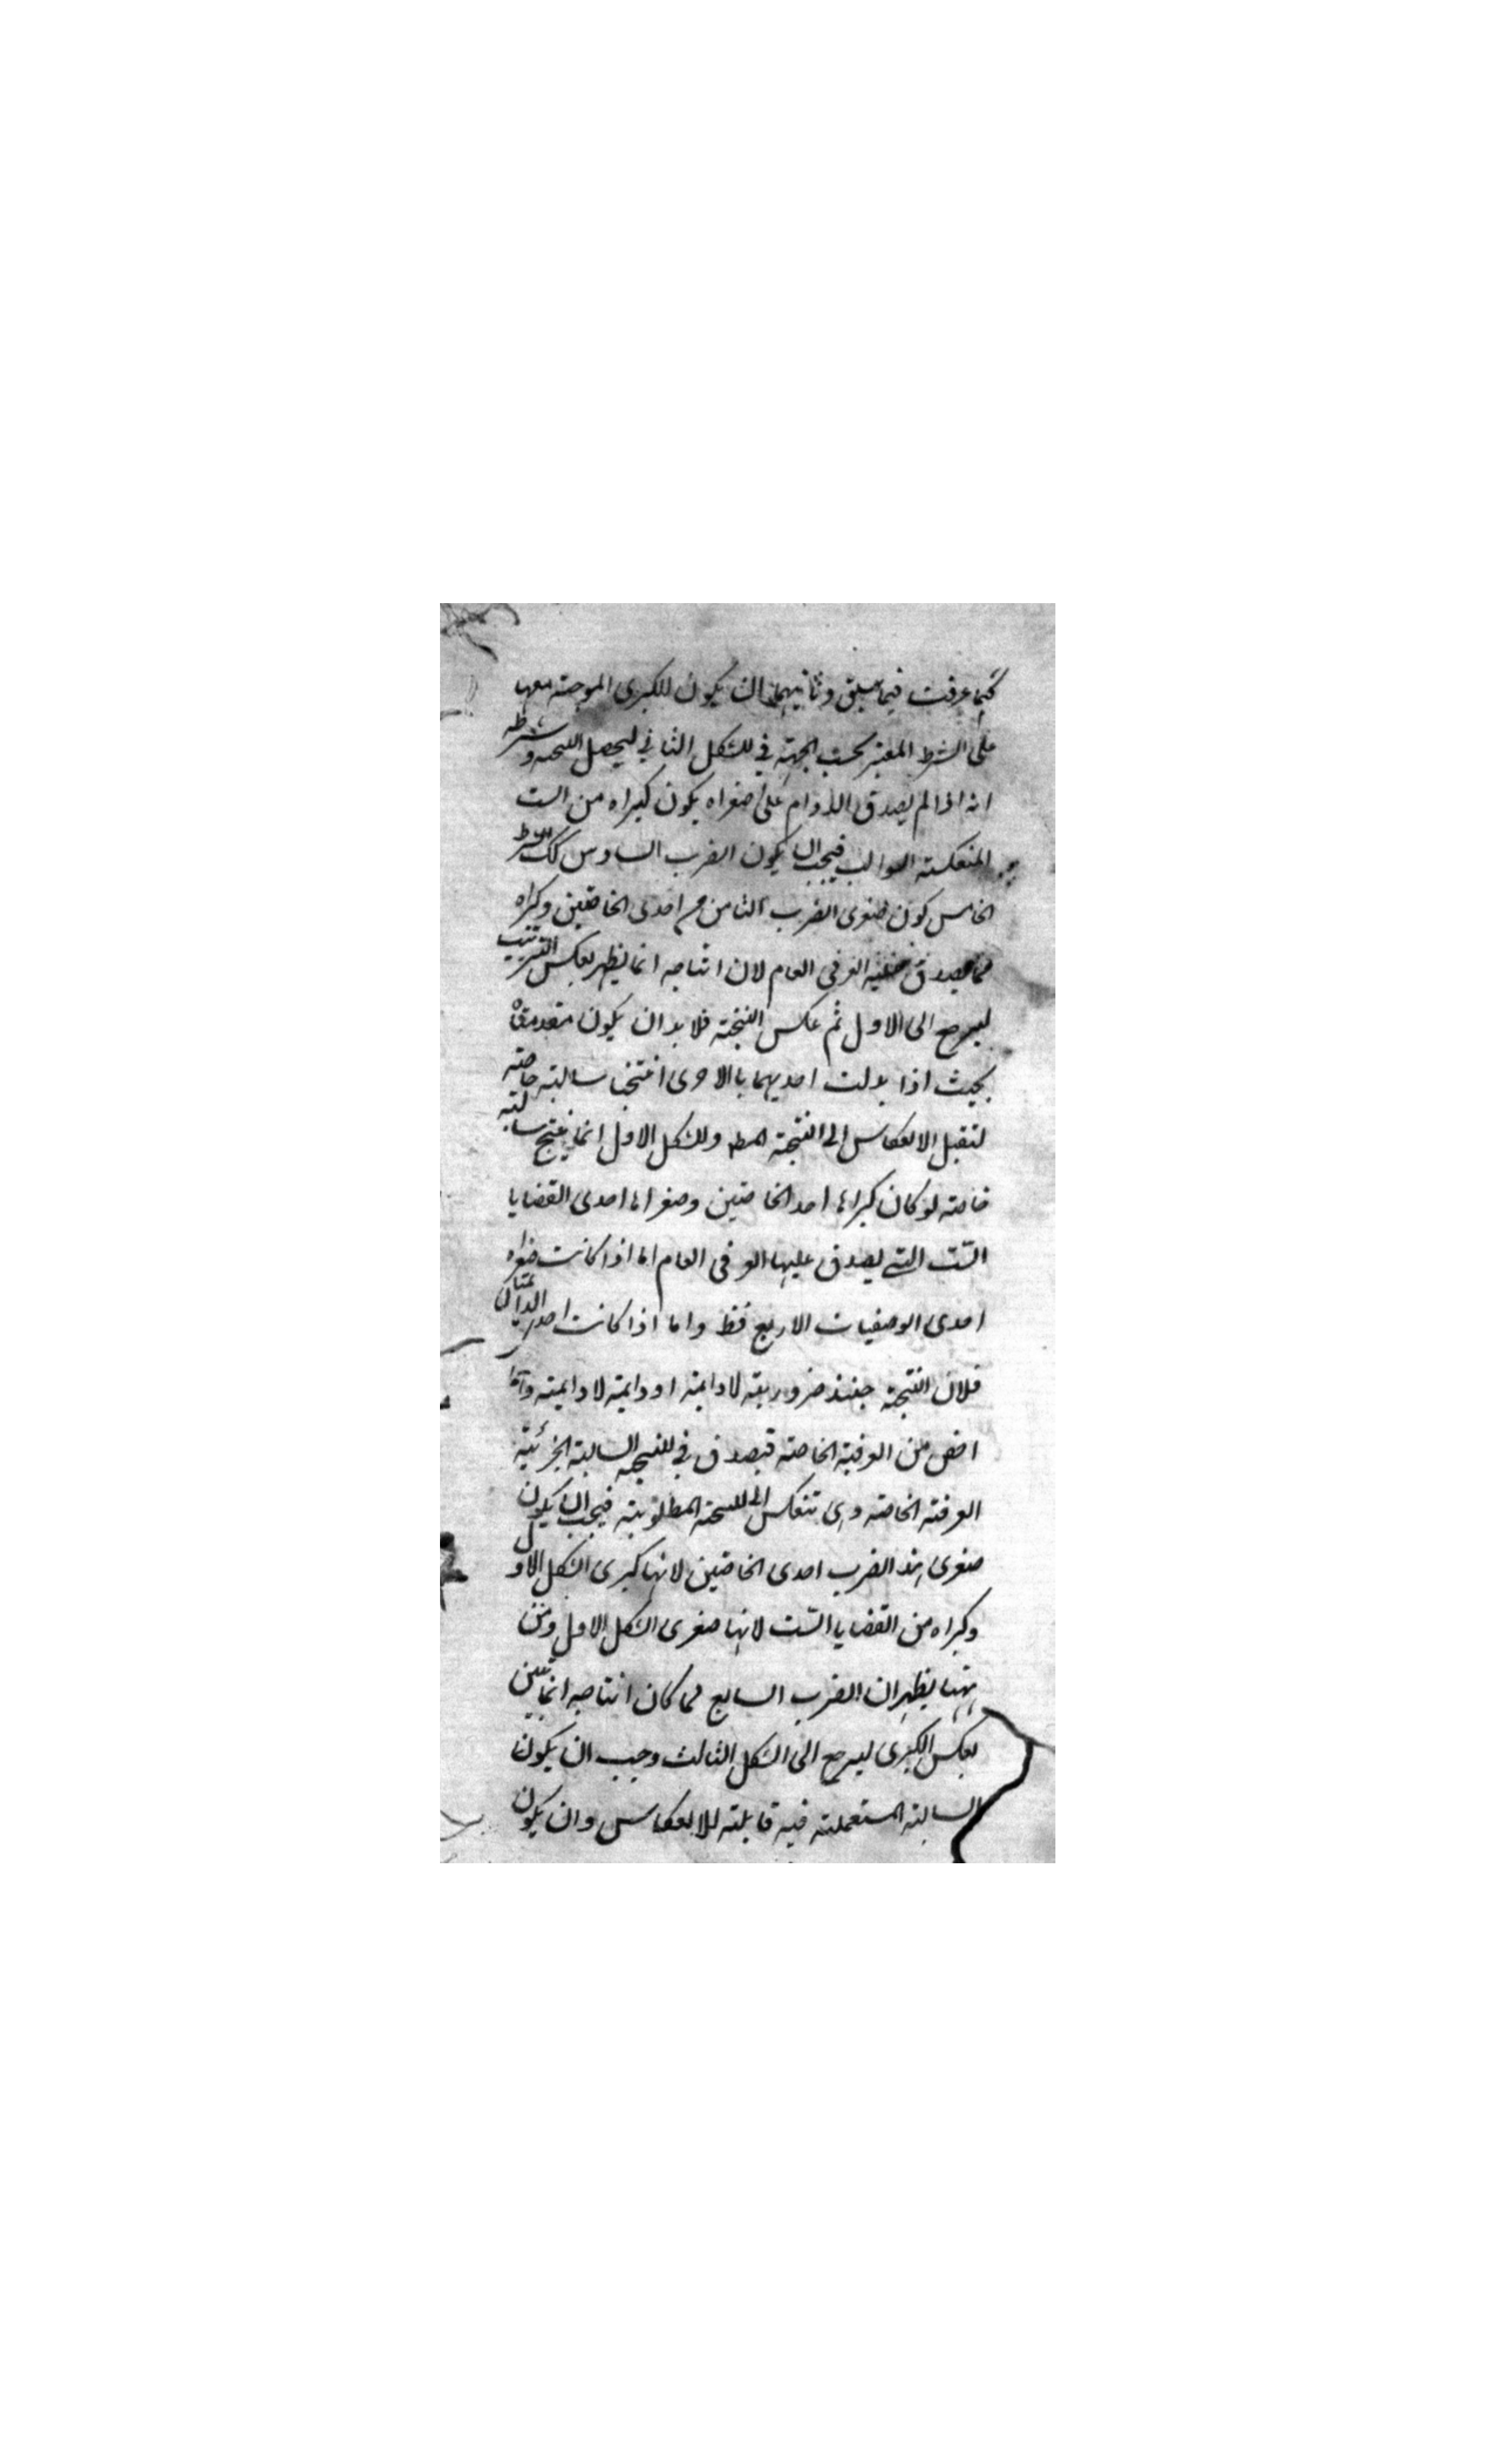 كما عرفت فيما سبق وثانيهما ان يكون للكبرى الموجبة معها
على الشرط المعتبر بحسب الجهة في الشكل الثاني ليحصل النتيجة وشرطه
انه اذا لم يصدق الدوام على صغراه يكون كبراه من الست
المنعكسة السوالب فيجب ان يكون الضرب السادس كك الشرط
الخامس كون صغرى الضرب الثامن من احدى الخاصتين وكبراه
مما يصدق عليه العرفى العام لان انتاجه انما يظهر بعكس الترتيب
ليرجع الى الاول ثم عكس النتيجة فلا بد ان يكون مقدمتاه
بحيث اذا بدلت احديهما بالاخرى انتجتا سالبة خاصة
لتقبل الانعكاس الى النتيجة المط والشكل الاول انما ينتج سالبة
خاصة لو كان كبراها احد الخاصتين وصغراها احدى القضايا
الست التى يصدق عليها العرفى العام اما اذا كانت صغراه
احدى الوصفيات الاربع فظ واما اذا كانت احدى الدائمتان
فلان النتيجة حينئذ ضرورية لادايمة او دايمة لادايمة وهما
اخص من العرفية الخاصة فيصدق في النتيجة السالبة الجزئية
العرفية الخاصة وهى تنعكس الى النتيجة المطلوبة فيجب ان يكون
صغرى هذ الضرب احدى الخاصتين لانها كبرى الشكل الاول
وكبراه من القضايا الست لانها صغرى الشكل الاول ومن
ههنا يظهر ان الضرب السابع لما كان انتاجه انما تبين
بعكس الكبرى ليرجع الى الشكل الثالث وجب ان يكون
السالبة المستعملة فيه قابلة للانعكاس وان يكون